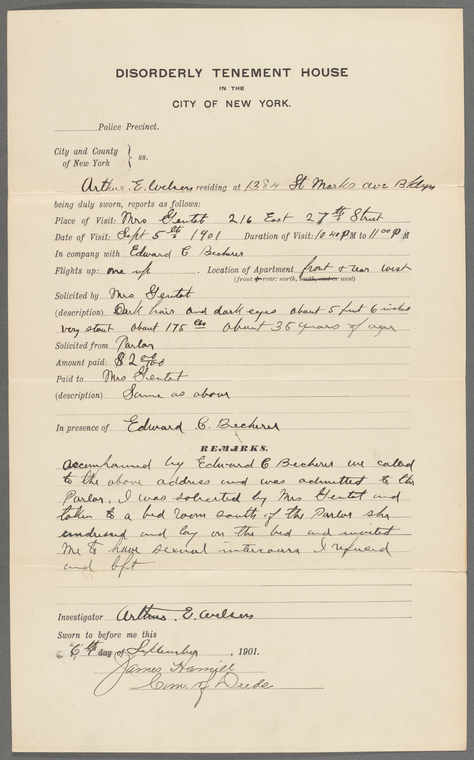 DISORDERLY TENEMENT HOUSE
IN THE
CITY OF NEW YORK.
Police Precinct.
City and County
of New York } ss.
Arthur E. Wilson residing at 1384 St Marks ave Bklyn
being duly sworn, reports as follows:
Place of Visit: Mrs Gentet 216 East 27th Street
Date of Visit: Sept 5th 1901 Duration of Visit: 10 40 P M to 11 00 P M
In company with Edward C Becherer
Flights up: one up . Location of Apartment front & rear west
(front or rear: north, south, east or west)
Solicited by Mrs Gentet
(description) Dark hair and dark eyes about 5 feet 6 inches
very stout about 175 lbs about 35 years of age
Solicited from Parlor
Amount paid: $2 00/100
Paid to Mrs Gentet
(description) Same as above
In presence of Edward C. Becherer
REMARKS.
accompanied by Edward C Becherer we called
to the above address and was admitted to the
Parlor, I was solicited by Mrs Gentet and
taken to a bed room south of the Parlor she
undressed and lay on the bed and invited
me to have sexual intercourse I refused
and left
Investigator Arthur E. Wilson
Sworn to before me this
6th day of September , 1901.
James Hamill
Com. of Deeds